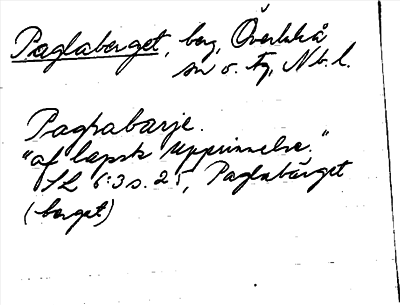 Paglaberget, berg, Överluleå
sn o. fg, Nb. l.
Paglabärje.
"af lapsk upprinnelse."
SL 6:3 s. 25, Paglabärget
(berget)